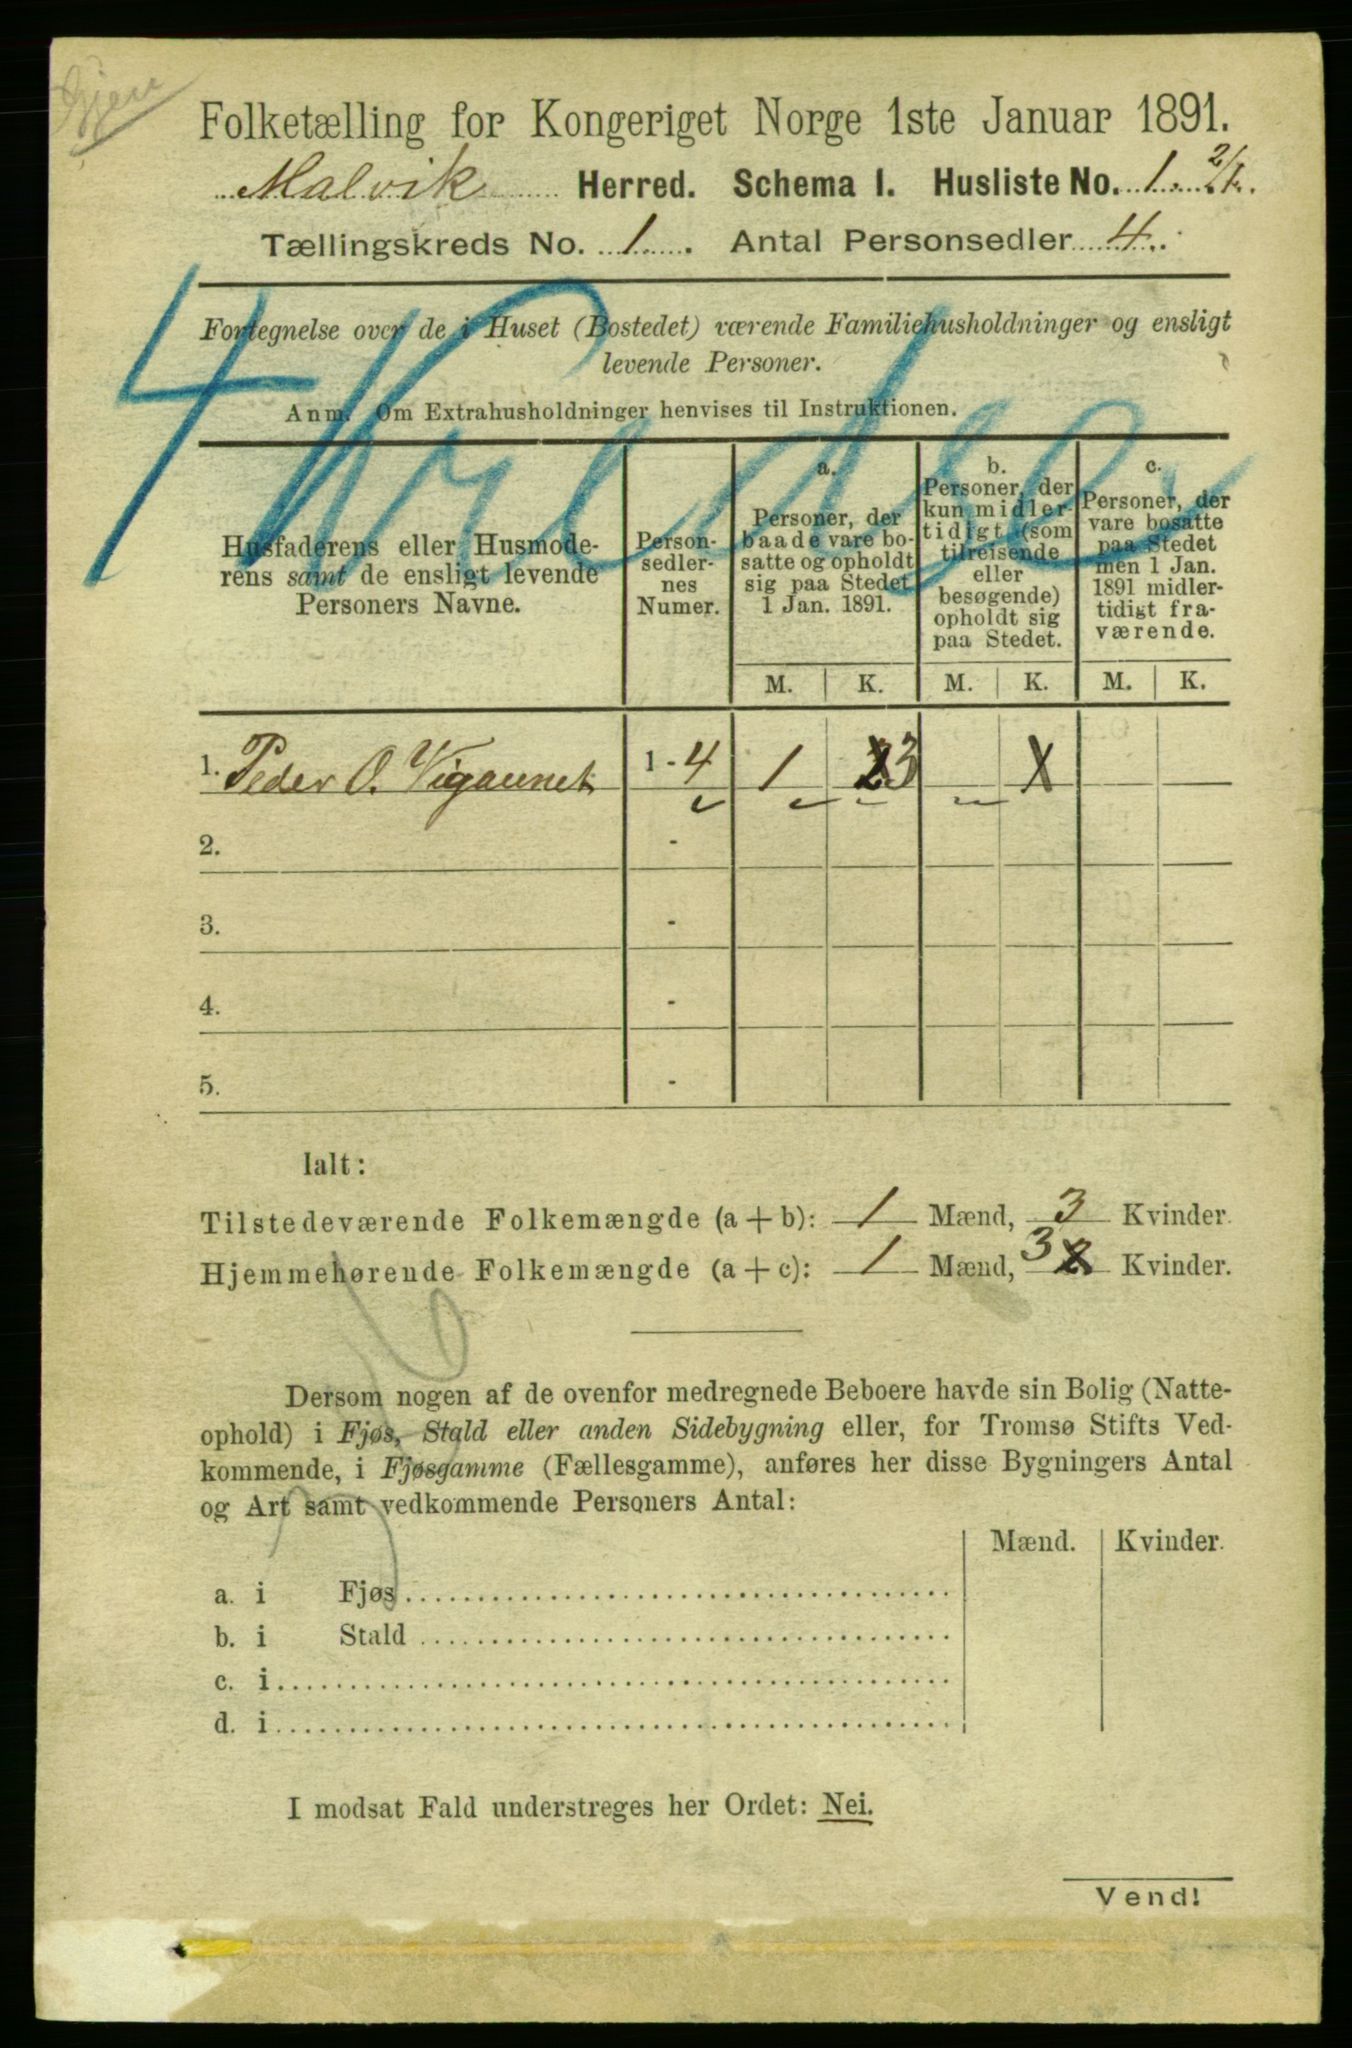 Folketælling for Kongeriget Norge 1ste Januar 1891.
Malvik Herred. Schema I. Husliste No. 1. 2/1.
Tællingskreds No. 1. Antal Personsedler 4.
4 Kreder
Fortegnelse over de i Huset (Bostedet) værende Familiehusholdninger og ensligt
levende Personer.
Anm. Om Extrahusholdninger henvises til Instruktionen.
Husfaderens eller Husmode-
rens samt de ensligt levende
Personers Navne.
Person-
sedler-
nes
Numer.
a.
Personer, der
baade vare bo-
satte og opholdt
sig paa Stedet
1 Jan. 1891.
b.
Personer, der
kun midler-
tidigt (som
tilreisende
eller
besøgende)
opholdt sig
paa Stedet.
c.
Personer, der
vare bosatte
paa Stedet
men 1 Jan.
1891 midler-
tidigt fra-
værende.
M. K. M. K. M. K.
1. Peder O. Vigaunet 1 - 4 1 2 3 X
2. -
3. -
4. -
5. -
Ialt:
Tilstedeværende Folkemængde (a + b): 1 Mænd, 3 Kvinder.
Hjemmehørende Folkemængde (a + c): 1 Mænd, 3 2 Kvinder.
Dersom nogen af de ovenfor medregnede Beboere havde sin Bolig (Natte-
ophold) i Fjøs, Stald eller anden Sidebygning eller, for Tromsø Stifts Ved-
kommende, i Fjøsgamme (Fællesgamme), anføres her disse Bygningers Antal
og Art samt vedkommende Personers Antal:
Mænd. Kvinder.
a. i Fjøs
b. i Stald
c. i
d. i
I modsat Fald understreges her Ordet: Nei.
Vend!